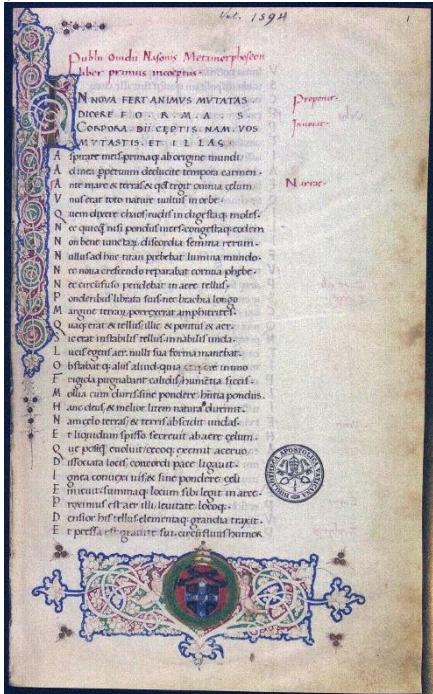 Vat. 1594
1
Publii Ouidii Nasonis Metamorphoseon
liber primus inceptus.
IN NOVA FERT ANIMVS MVTATAS
DICERE FORMAS
CORPORA. DII CEPTIS. NAM. VOS
MVTASTIS. ET ILLAS.
Proponit.
Inuocat.
A spirate meis primaq; ab origine mundi
A d mea perpetuum deducite tempora carmen
A nte mare & terras & qd tegit omnia celum
Narrat.
V nus erat toto nature uultus in orbe
Q uem dixere chaos: rudis indigestaq; moles
N ec quicq; nisi pondus iners: congestaq; eodem
N on bene iunctarum discordia semina rerum.
N ullus adhuc titan prebebat lumina mundo
N ec noua crescendo reparabat cornua phebe
N ec circunfuso pendebat in aere tellus
P onderibus librata suis: nec brachia longo
M argine terrarum porrexerat amphitrites
Q uaq; erat & tellus illic & pontus & aer
S ic erat instabilis tellus innabilis unda
L ucis egens aer. nulli sua forma manebat
O bstabatq; aliis aliud: quia corpore in uno
F rigida pugnabant calidis: humentia siccis
M ollia cum duris: sine pondere habentia pondus
H anc deus & melior litem natura diremit
N am celo terras & terris abscidit undas
E t liquidum spisso secreuit ab aere celum
Q ue postq; euoluit: cecoq; exemit aceruo
D issociata locis concordi pace ligauit
I gnea conuexi uis & sine pondere celi
E micuit summaq; locum sibi legit in arce
P roximus est aer illi leuitate locoq;
D ensior his tellus elementaq; grandia traxit
E t pressa est grauitate sui. circunfluus humor
BIBLIOTHECA APOSTOLICA VATICANA